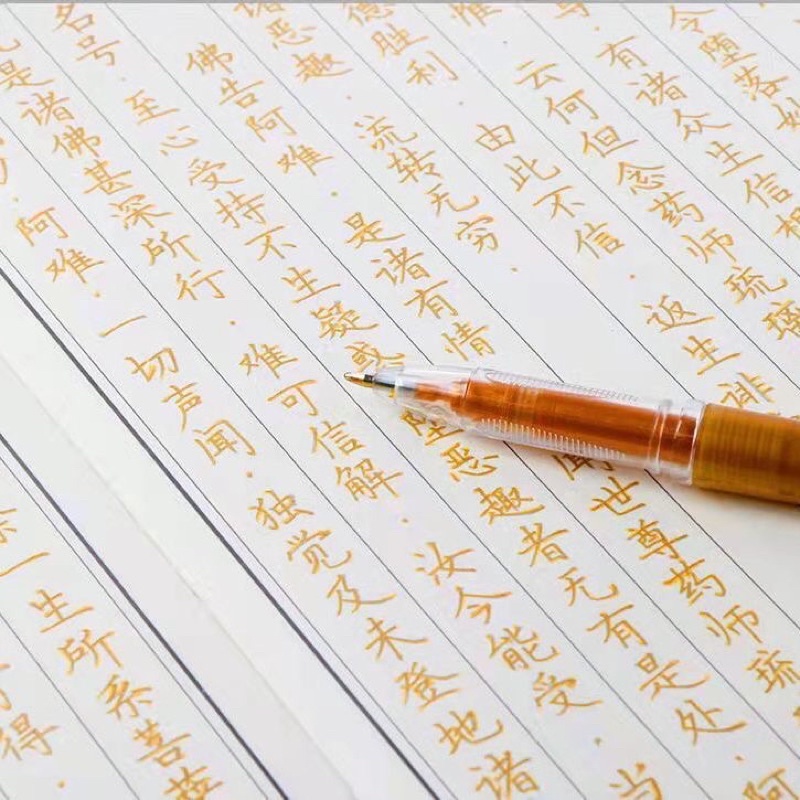 令堕落
有诸众生信根
惟·云何但念药师琉璃
德胜利·由此不信·返生诽
诸恶趣·流转无穷·
佛告阿难·是诸有情闻世尊药师琉
名号·至心受持不生疑惑堕恶趣者无有是处·阿
是诸佛甚深所行·难可信解·汝今能受·当
力·阿难·一切声闻·独觉及未登地诸
一生所系菩萨
得